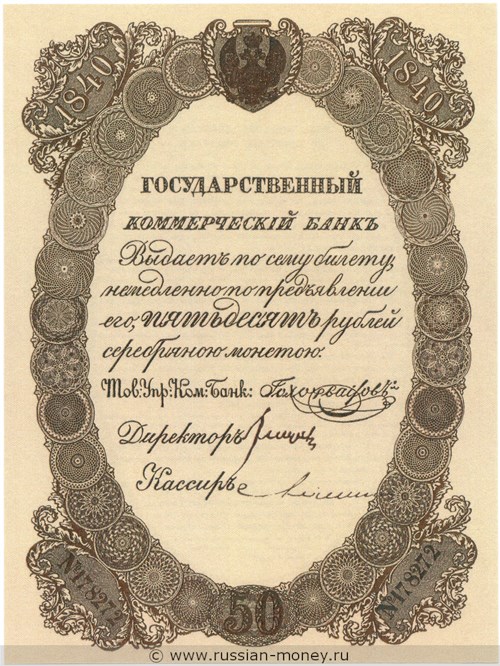 1840 1840
ГОСУДАРСТВЕННЫЙ
КОММЕРЧЕСКІЙ БАНКЪ
Выдаетъ по сему билету,
немедленно по предъявленіи
его, ПЯТЬДЕСЯТЪ рублей
серебряною монетою.
Тов: Упр: Ком: Банк:
Директоръ
Кассиръ
№178272 №178272
50
© www.russian-money.ru